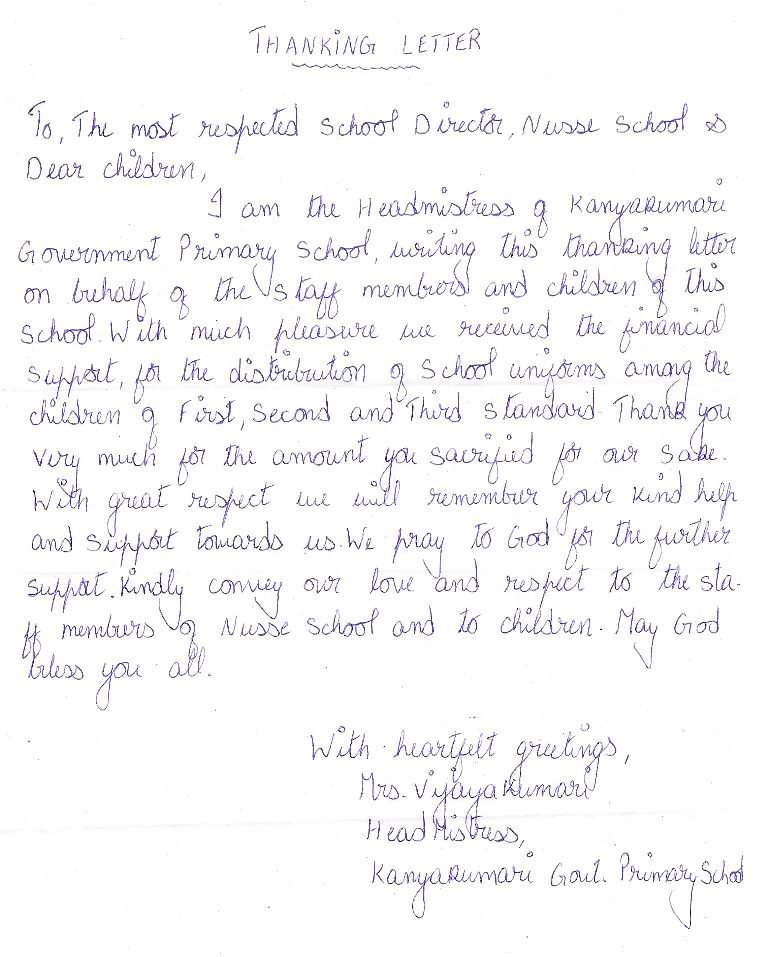 THANKING LETTER
To, The most respected School Director, Nusse School &
Dear children,
I am the Headmistress of Kanyakumari
Government Primary School, writing this thanking letter
on behalf of the staff members and children of this
School. With much pleasure we received the financial
support, for the distribution of School uniforms among the
children of First, Second and Third standard. Thank you
very much for the amount you sacrified for our sake.
With great respect we will remember your kind help
and support towards us. We pray to God for the further
support. Kindly convey our love and respect to the sta-
ff members of Nusse School and to children. May God
bless you all.
With heartfelt greetings,
Mrs. Vijayakumari
HeadMistress,
Kanyakumari Govt. Primary School